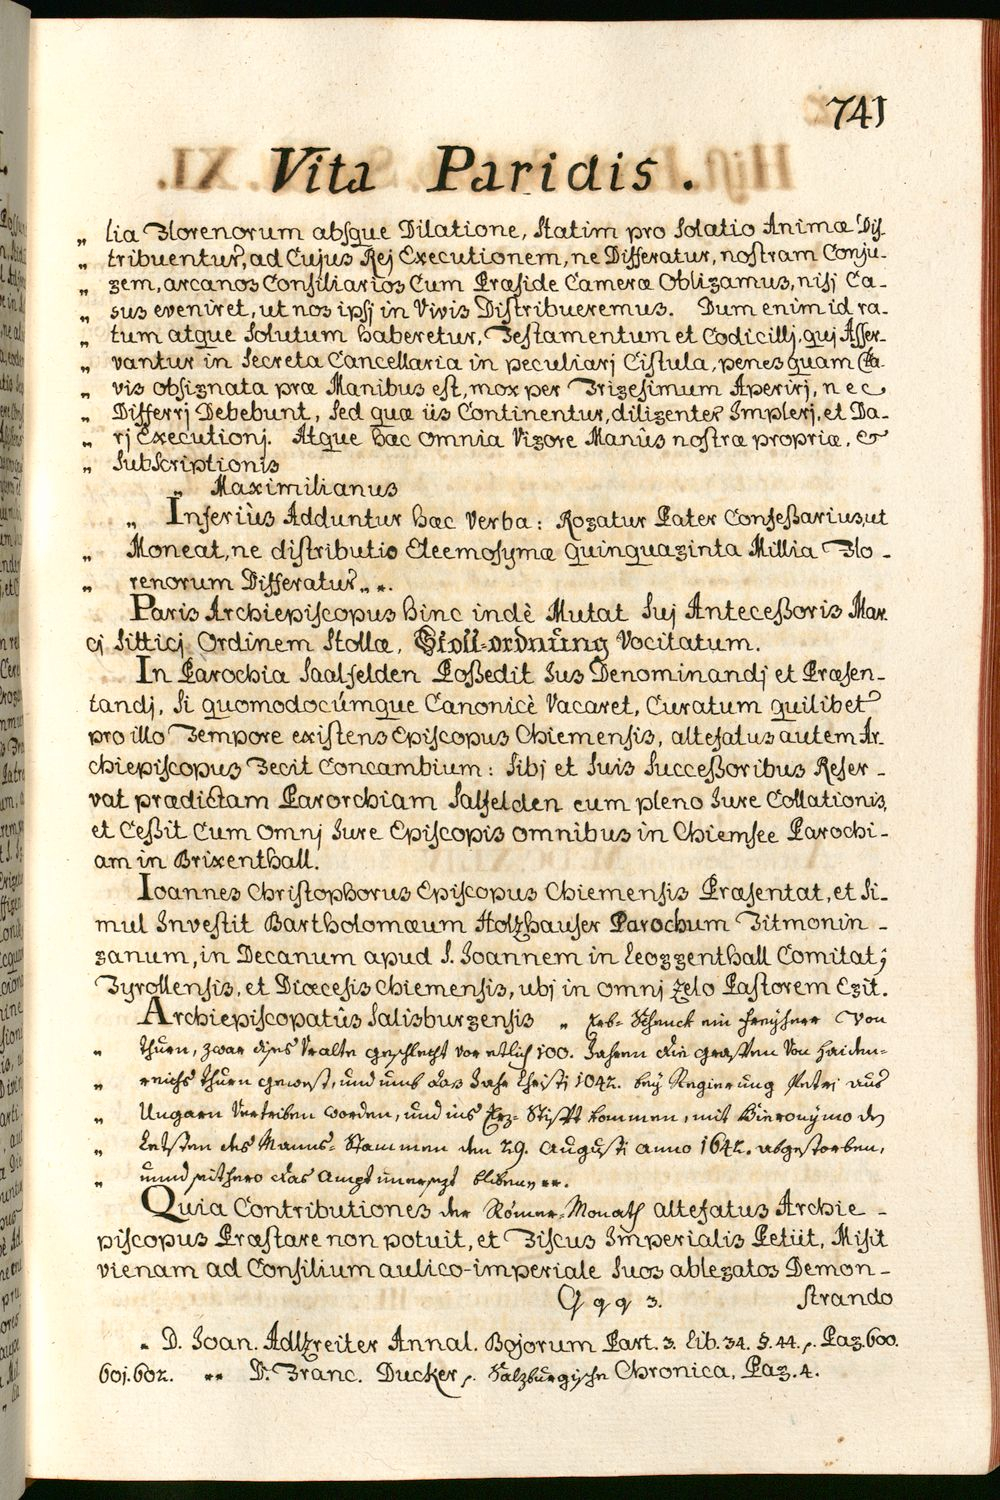 741
Vita Paridis.
„ lia Florenorum absque Dilatione, Statim pro Solatio Animæ Dis-
„ tribuentur, ad Cujus Rej Executionem, ne Differatur, nostram Conju-
„ gem, arcanos Consiliarios Cum Præside Cameræ Obligamus, nisj Ca-
„ sus eveniret, ut nos ipsj in Vivis Distribueremus. Dum enim id ra-
„ tum atque Solutum haberetur, Testamentum et Codicillj, quj Asser-
„ vantur in Secreta Cancellaria in peculiarj Cistula, penes quam Cla-
„ vis obsignata præ Manibus est, mox per Trigesimum Aperirj, nec
„ Differrj Debebunt, Sed quæ iis Continentur, diligenter Implerj, et Da-
„ rj Executionj. Atque hæc omnia Vigore Manûs nostræ propriæ, &
„ Subscriptionis
„ Maximilianus
„ Inferiùs Adduntur hæc Verba: Rogatur Pater Confeßarius, ut
„ Moneat, ne distributio Eleemosymæ quinquaginta Millia Flo-
„ renorum Differatur „ *.
Paris Archiepiscopus hinc indè Mutat Suj Anteceßoris Mar-
cj Sitticj Ordinem Stollæ, Stoll-ordnung Vocitatum.
In Parochia Saalfelden Poßedit Jus Denominandj et Præsen-
tandj, Si quomodocúmque Canonicè Vacaret, Curatum quilibet
pro illo Tempore existens Episcopus Chiemensis, altefatus autem Ar-
chiepiscopus Fecit Concambium: Sibj et Suis Succeßoribus Reser-
vat prædictam Parorchiam Salfelden cum pleno Jure Collationis,
et Ceßit Cum omnj Jure Episcopis omnibus in Chiemsee Parochi-
am in Brixenthall.
Ioannes Christophorus Episcopus Chiemensis Præsentat, et Si-
mul Investit Bartholomæum Holzhauser Parochum Titmonin-
ganum, in Decanum apud S. Joannem in Leoggenthall Comitatj
Tyrollensis, et Diœcesis Chiemensis, ubj in omnj zelo Pastorem Egit.
Archiepiscopatûs Salisburgensis „ Erb-Schenck ein Freyherr Von
„ Thurn, zwar dises Uralte geschlecht vor etlich 100. Jahren die graffen Von Haiden-
„ reichs Thurn gewest, und umb das Jahr Christi 1042. bey Regierung Petri aus
„ Ungarn Vertriben worden, und ins Erz-Stifft kommen, mit Hieronymo des
„ Letsten des Manns-Stammen den 29. Augusti anno 1642. abgestorben,
„ unnd seithero das Ampt unersezt bliben „ **.
Quia Contributiones der Römer-Monath altefatus Archie-
piscopus Præstare non potuit, et Fiscus Imperialis Petiit, Misit
vienam ad Consilium aulico-imperiale Suos ablegatos Demon-
Qqqq 3. strando
* D. Joan. Adlzreiter Annal. Bojorum Part. 3. Lib. 34. §. 44. Pag. 600.
601. 602. ** D. Franc. Ducker, Salzburgische Chronica, Pag. 4.